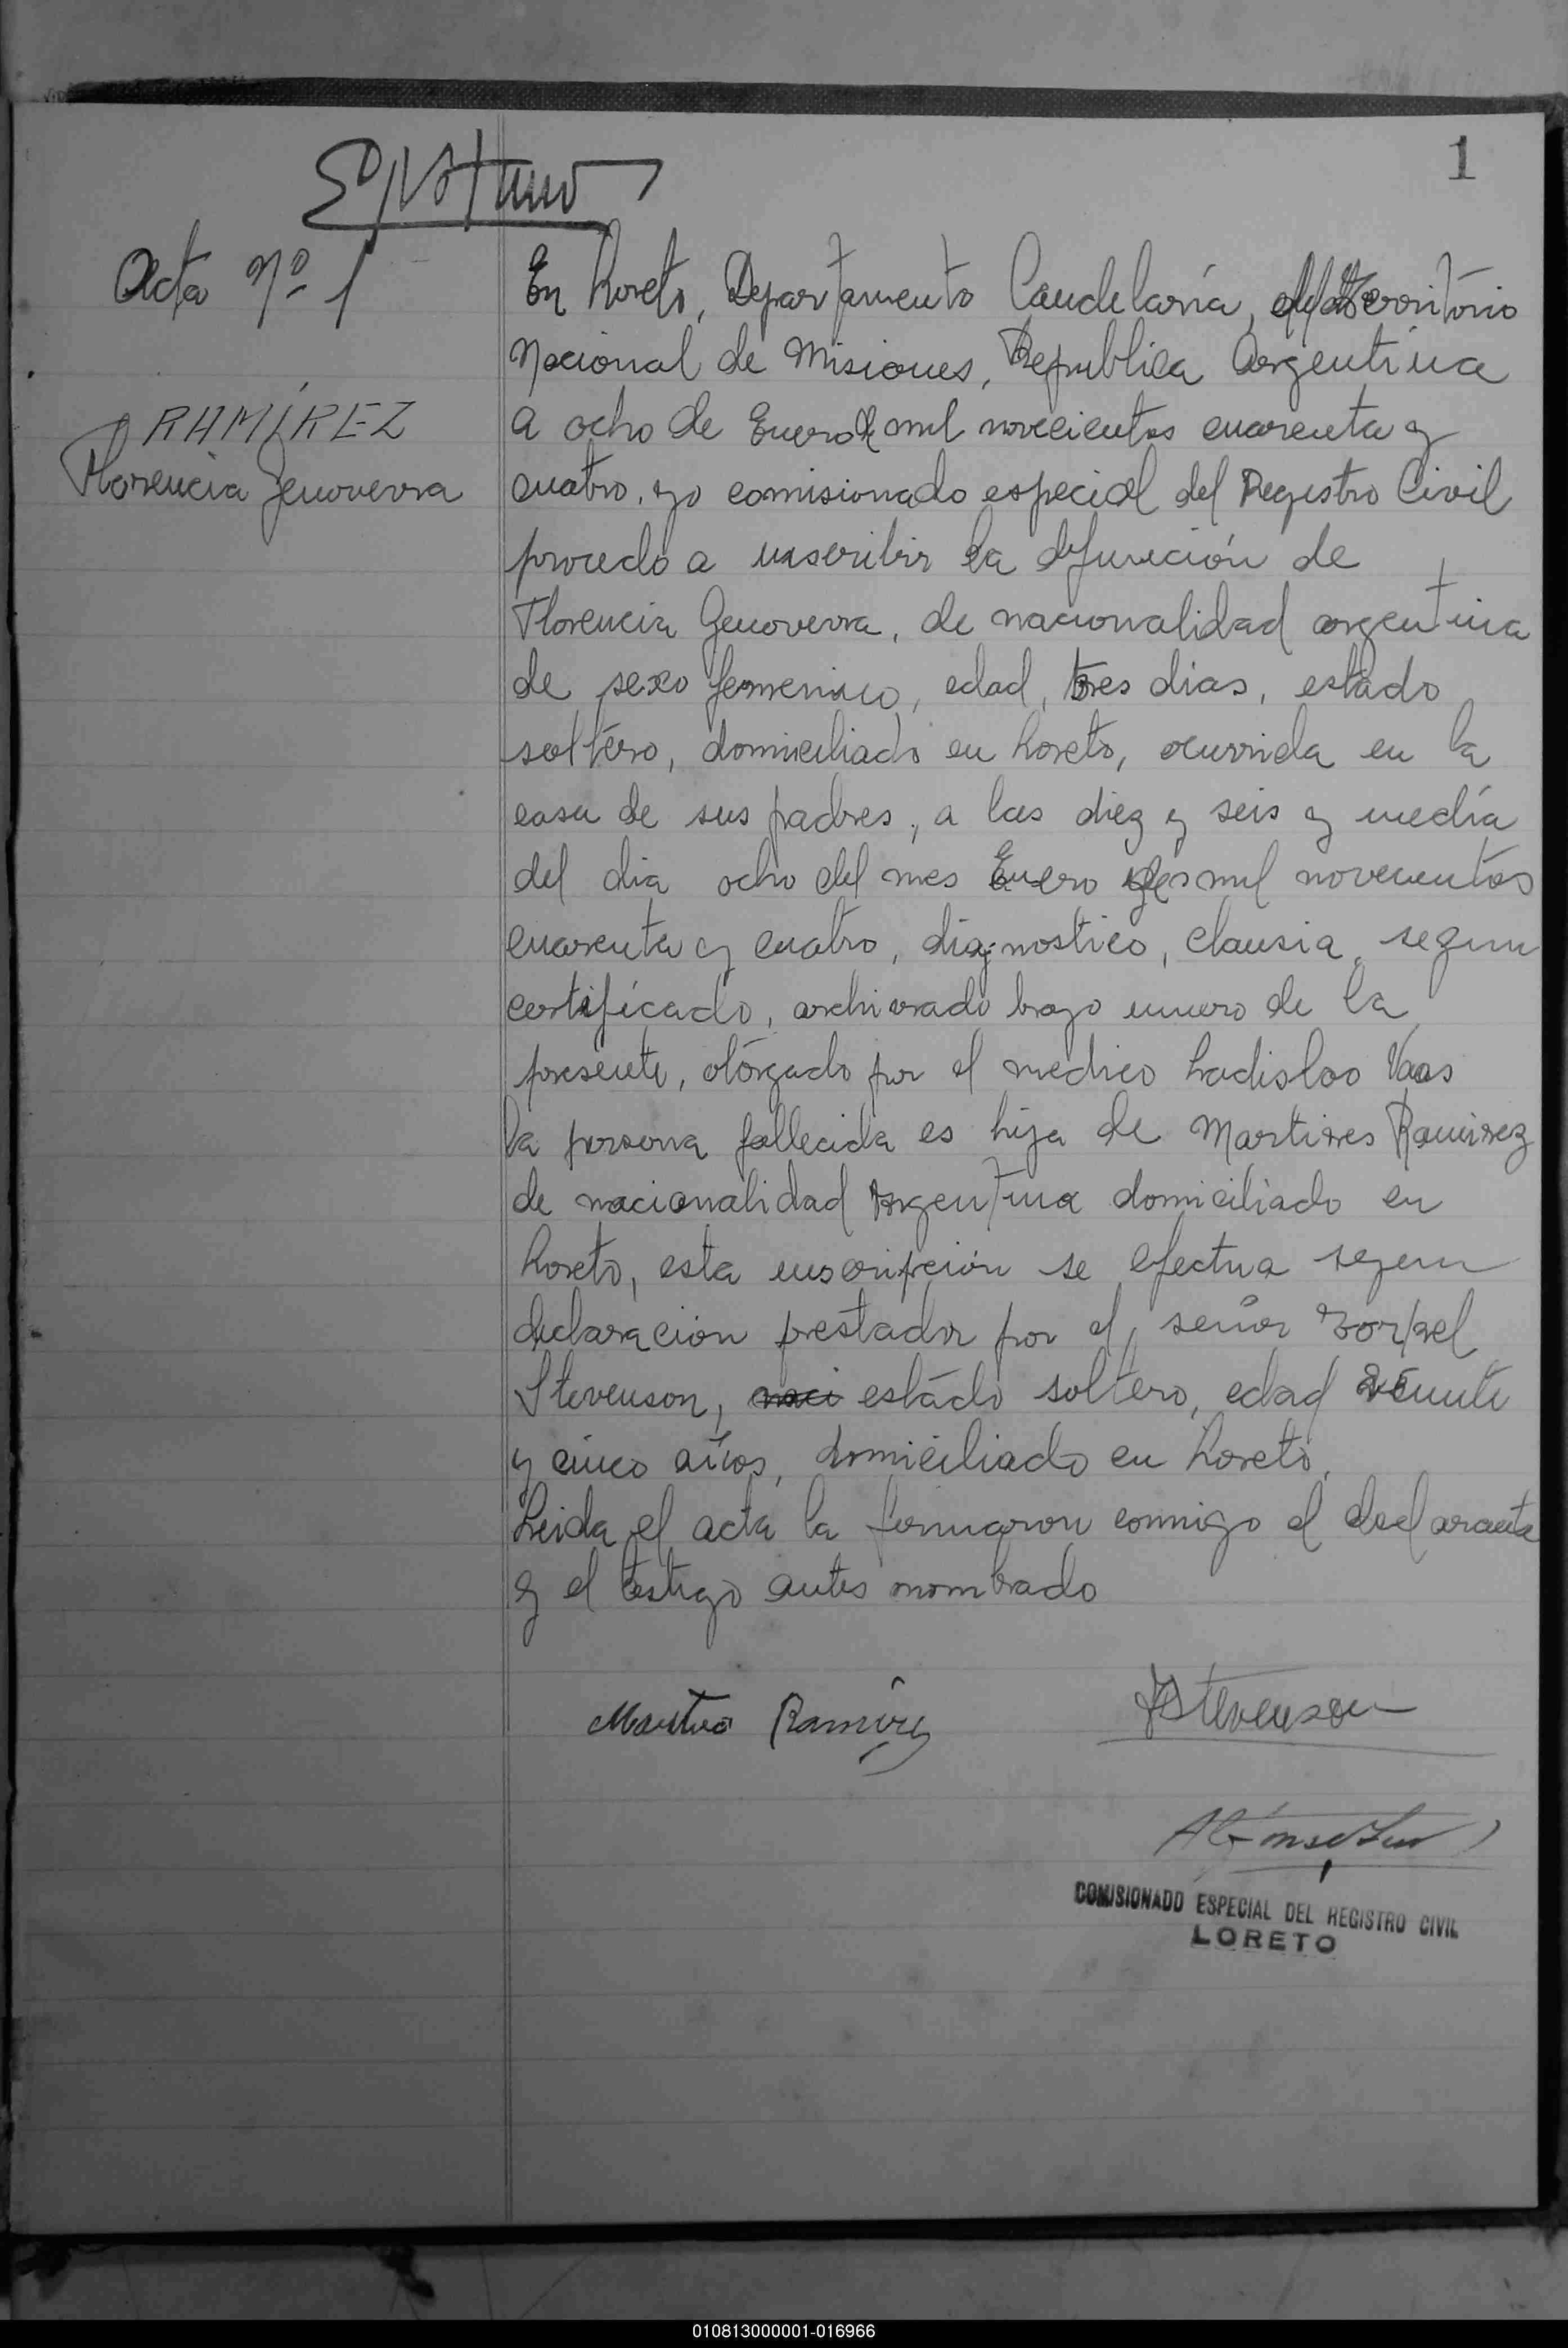 1
Acta Nº 1
RAMÍREZ
Florencia Genoverra
En Loreto, Departamento Candelaria, del territorio
Nacional de Misiones, Republica Argentina
a ocho de Enero de mil novecientos cuarenta y
cuatro, yo comisionado especial del Registro Civil
procedo a inscribir la defunción de
Florencia Genoverra, de nacionalidad argentina
de sexo femenino, edad, tres dias, estado
soltero, domiciliado en Loreto, ocurrida en la
casa de sus padres, a las diez y seis y media
del dia ocho del mes Enero de mil novecentos
cuarenta y cuatro, diagnostico, clausia, segun
certificado, archivado bajo numero de la
presente, otorgado por el medico Ladislao Vaas
la persona fallecida es hija de Martires Ramirez
de nacionalidad Argentina domiciliado en
Loreto, esta inscripción se efectua segun
declaración prestada por el señor
Stevenson, estado soltero, edad veinte
y cinco años, domiciliado en Loreto.
Leida el acta la firmaron conmigo el declarante
y el testigo antes nombrado
Ramírez
Stevenson
COMISIONADO ESPECIAL DEL REGISTRO CIVIL
LORETO
010813000001-016966